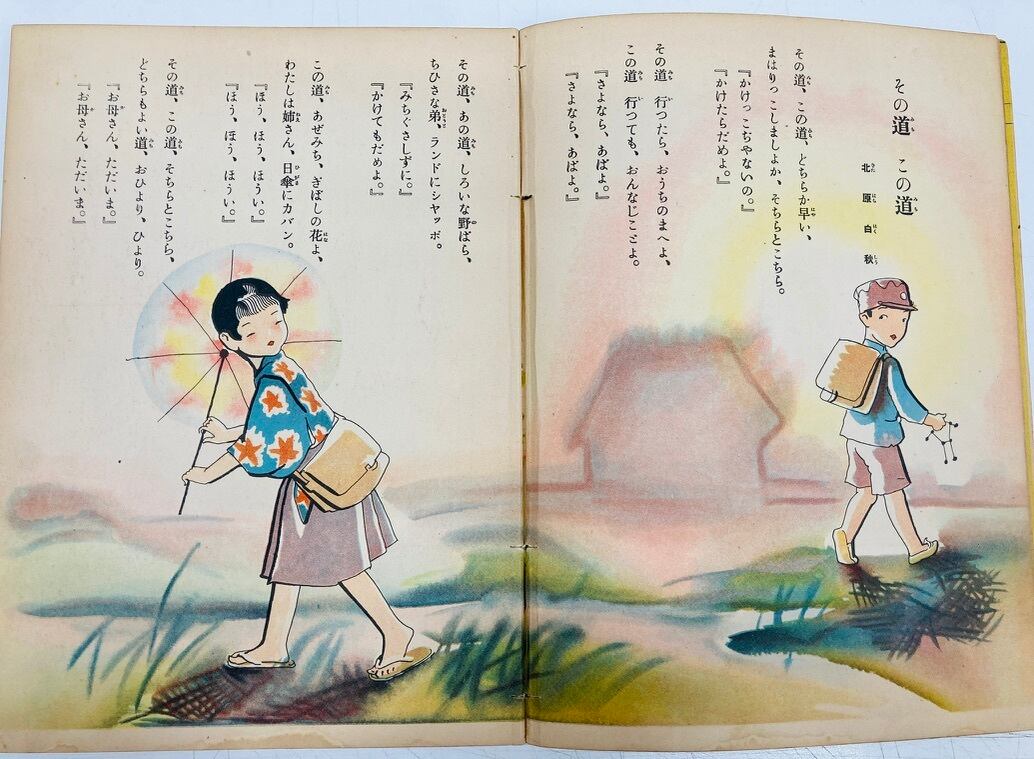 その道 この道
北原白秋
その道、この道、どちらが早い、
まはりつこしましよか、そちらとこちら。
『かけつこぢやないの。』
『かけたらだめよ。』
その道 行つたら、おうちのまへよ、
この道 行つても、おんなじことよ。
『さよなら、あばよ。』
『さよなら、あばよ。』
その道、あの道、しろいな野ばら、
ちひさな弟、ランドにシヤツポ。
『みちぐさしずに。』
『かけてもだめよ。』
この道、あぜみち、ぎぼしの花よ、
わたしは姉さん、日傘にカバン。
『ほう、ほう、ほうい。』
『ほう、ほう、ほうい。』
その道、この道、そちらとこちら、
どちらもよい道、おひより、ひより。
『お母さん、ただいま。』
『お母さん、ただいま。』